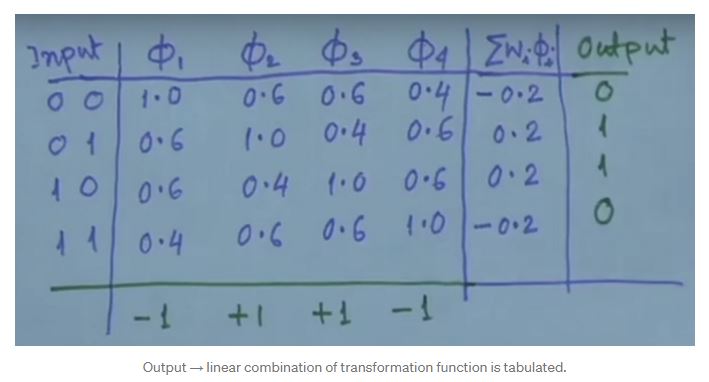 Input ϕ₁ ϕ₂ ϕ₃ ϕ₄ ΣWᵢϕᵢ Output
0 0 1.0 0.6 0.6 0.4 -0.2 0
0 1 0.6 1.0 0.4 0.6 0.2 1
1 0 0.6 0.4 1.0 0.6 0.2 1
1 1 0.4 0.6 0.6 1.0 -0.2 0
-1 +1 +1 -1
Output → linear combination of transformation function is tabulated.